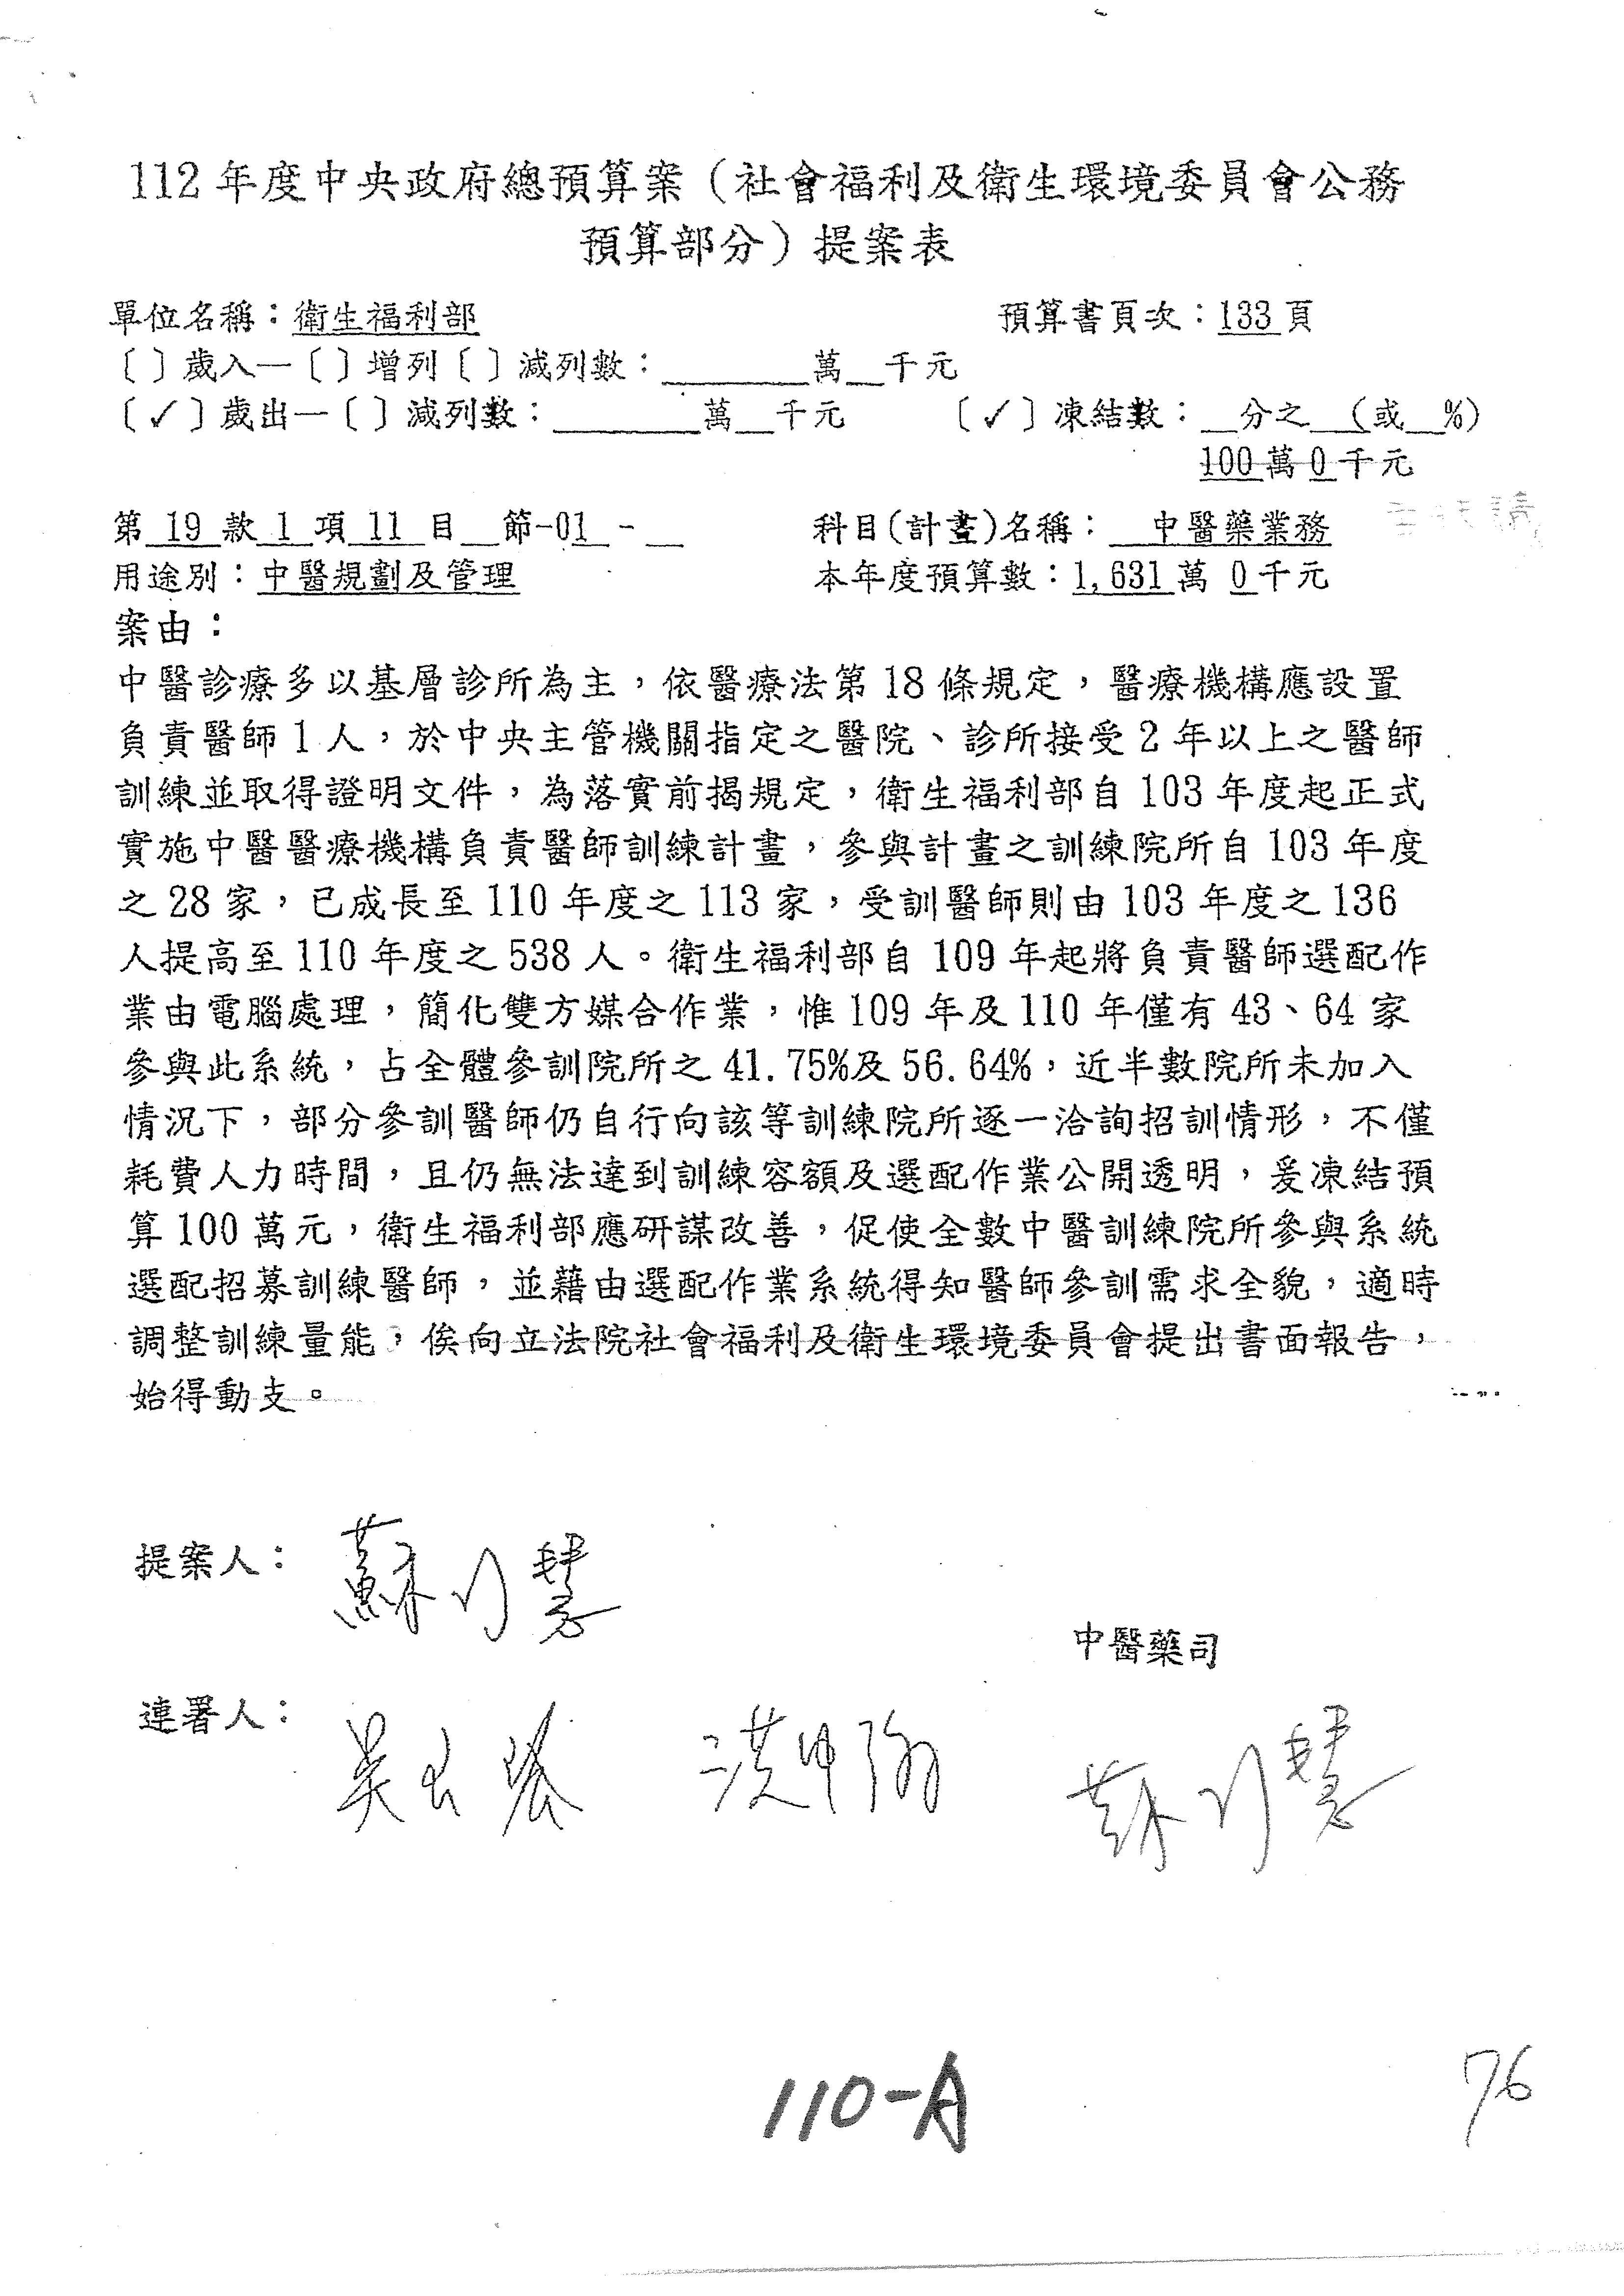 112年度中央政府總預算案（社會福利及衛生環境委員會公務
預算部分）提案表
單位名稱：衛生福利部 預算書頁次：133頁
〔〕歲入—〔〕增列〔〕減列數：________萬__千元
〔✓〕歲出—〔〕減列數：________萬__千元 〔✓〕凍結數：__分之__（或__%）
100萬0千元
第 19 款 1 項 11 目__節-01 -__ 科目(計畫)名稱：中醫藥業務
用途別：中醫規劃及管理 本年度預算數：1,631萬 0千元
案由：
中醫診療多以基層診所為主，依醫療法第18條規定，醫療機構應設置
負責醫師1人，於中央主管機關指定之醫院、診所接受2年以上之醫師
訓練並取得證明文件，為落實前揭規定，衛生福利部自103年度起正式
實施中醫醫療機構負責醫師訓練計畫，參與計畫之訓練院所自103年度
之28家，已成長至110年度之113家，受訓醫師則由103年度之136
人提高至110年度之538人。衛生福利部自109年起將負責醫師選配作
業由電腦處理，簡化雙方媒合作業，惟109年及110年僅有43、64家
參與此系統，占全體參訓院所之41.75%及56.64%，近半數院所未加入
情況下，部分參訓醫師仍自行向該等訓練院所逐一洽詢招訓情形，不僅
耗費人力時間，且仍無法達到訓練容額及選配作業公開透明，爰凍結預
算100萬元，衛生福利部應研謀改善，促使全數中醫訓練院所參與系統
選配招募訓練醫師，並藉由選配作業系統得知醫師參訓需求全貌，適時
調整訓練量能，俟向立法院社會福利及衛生環境委員會提出書面報告，
始得動支。
提案人：蘇巧慧
中醫藥司
連署人：吳玉琴 洪申翰 蘇巧慧
110-A
76